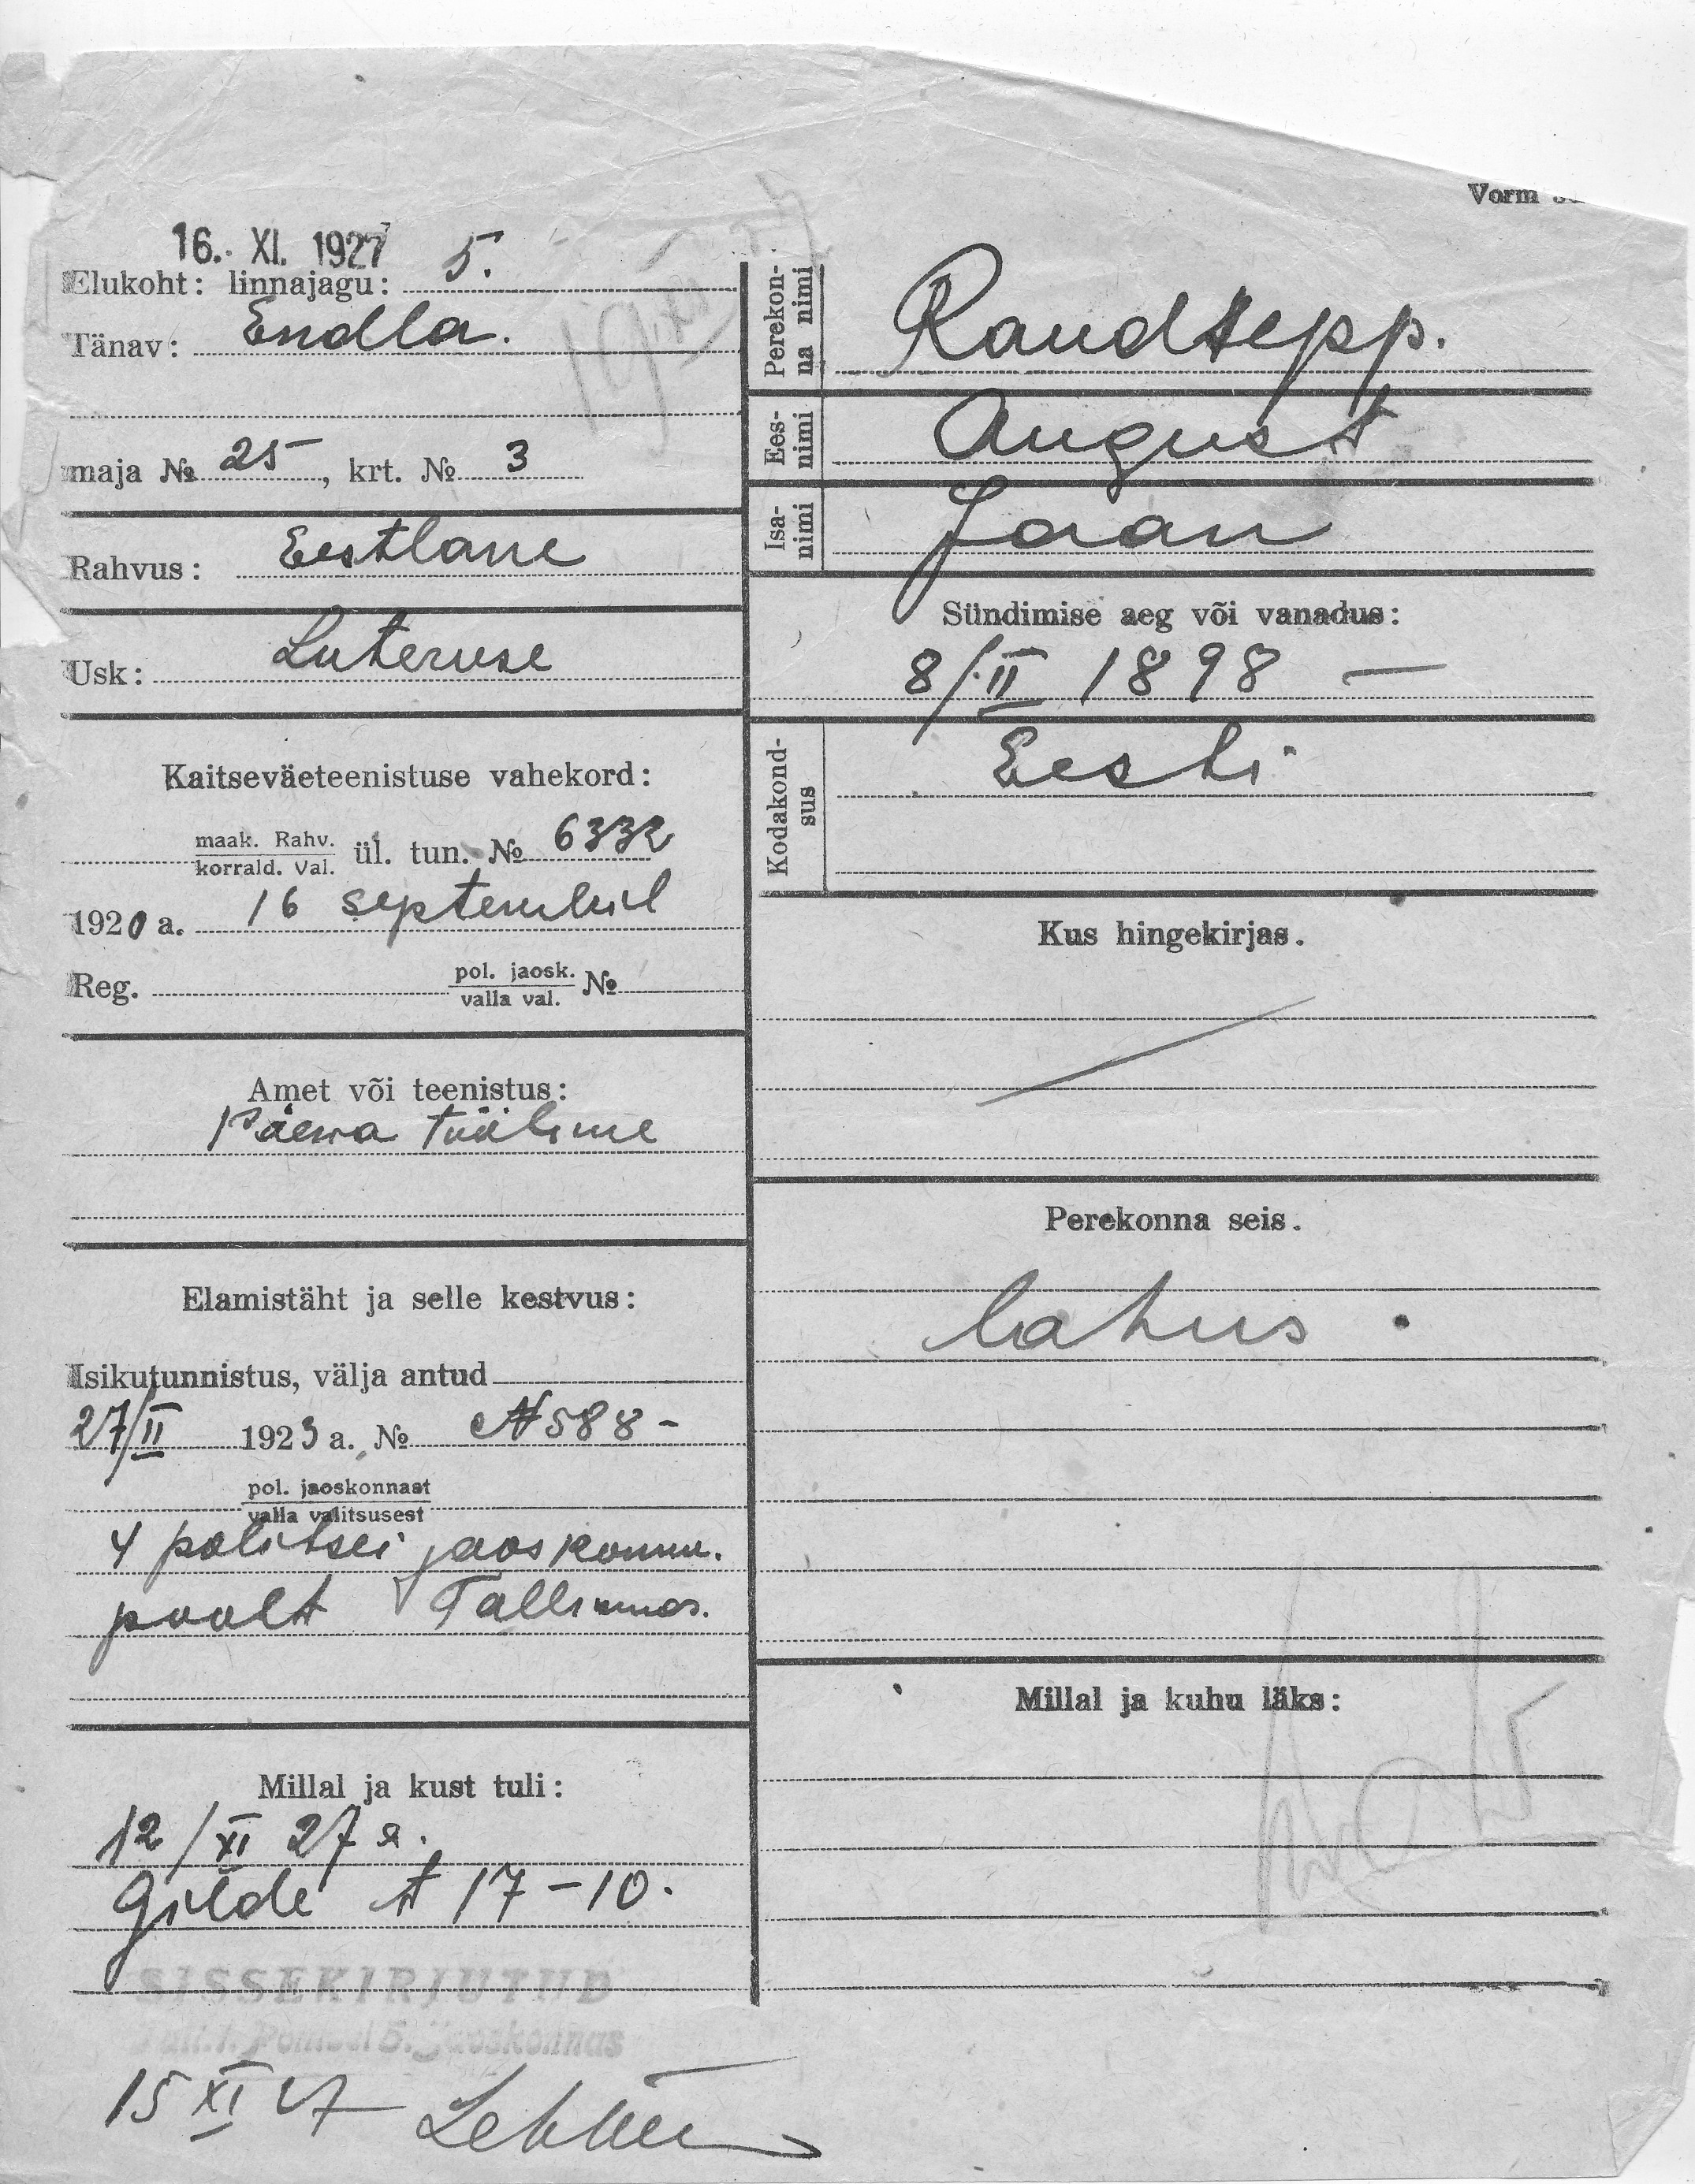 Vorm
16. XI. 1927
Elukoht: linnajagu: 5.
Tänav: Endla.
maja № 25, krt. № 3
Rahvus: Eestlane
Usk: Luteruse
Kaitseväeteenistuse vahekord:
maak. Rahv.
korrald. Val. ül. tun. № 6332
1920 a. 16 septembril
Reg. pol. jaosk. №
valla val.
Amet või teenistus:
Päewa tööline
Elamistäht ja selle kestvus:
Isikutunnistus, välja antud
27/II 1923 a. № N588-
pol. jaoskonnast
valla valitsusest
4 politsei jaoskonna.
poolt Tallinnas.
Millal ja kust tuli:
12/XI 27 a.
Gilde t 17-10.
SISSEKIRJUTUD
5. Jaoskonnas
15 XI 27
Perekon-
na nimi
Raudsepp.
Ees-
nimi
August
Isa-
nimi
Jaan
Sündimise aeg või vanadus:
8/II 1898 —
Kodakond-
sus
Eesti
Kus hingekirjas.
Perekonna seis.
lahus
Millal ja kuhu läks: